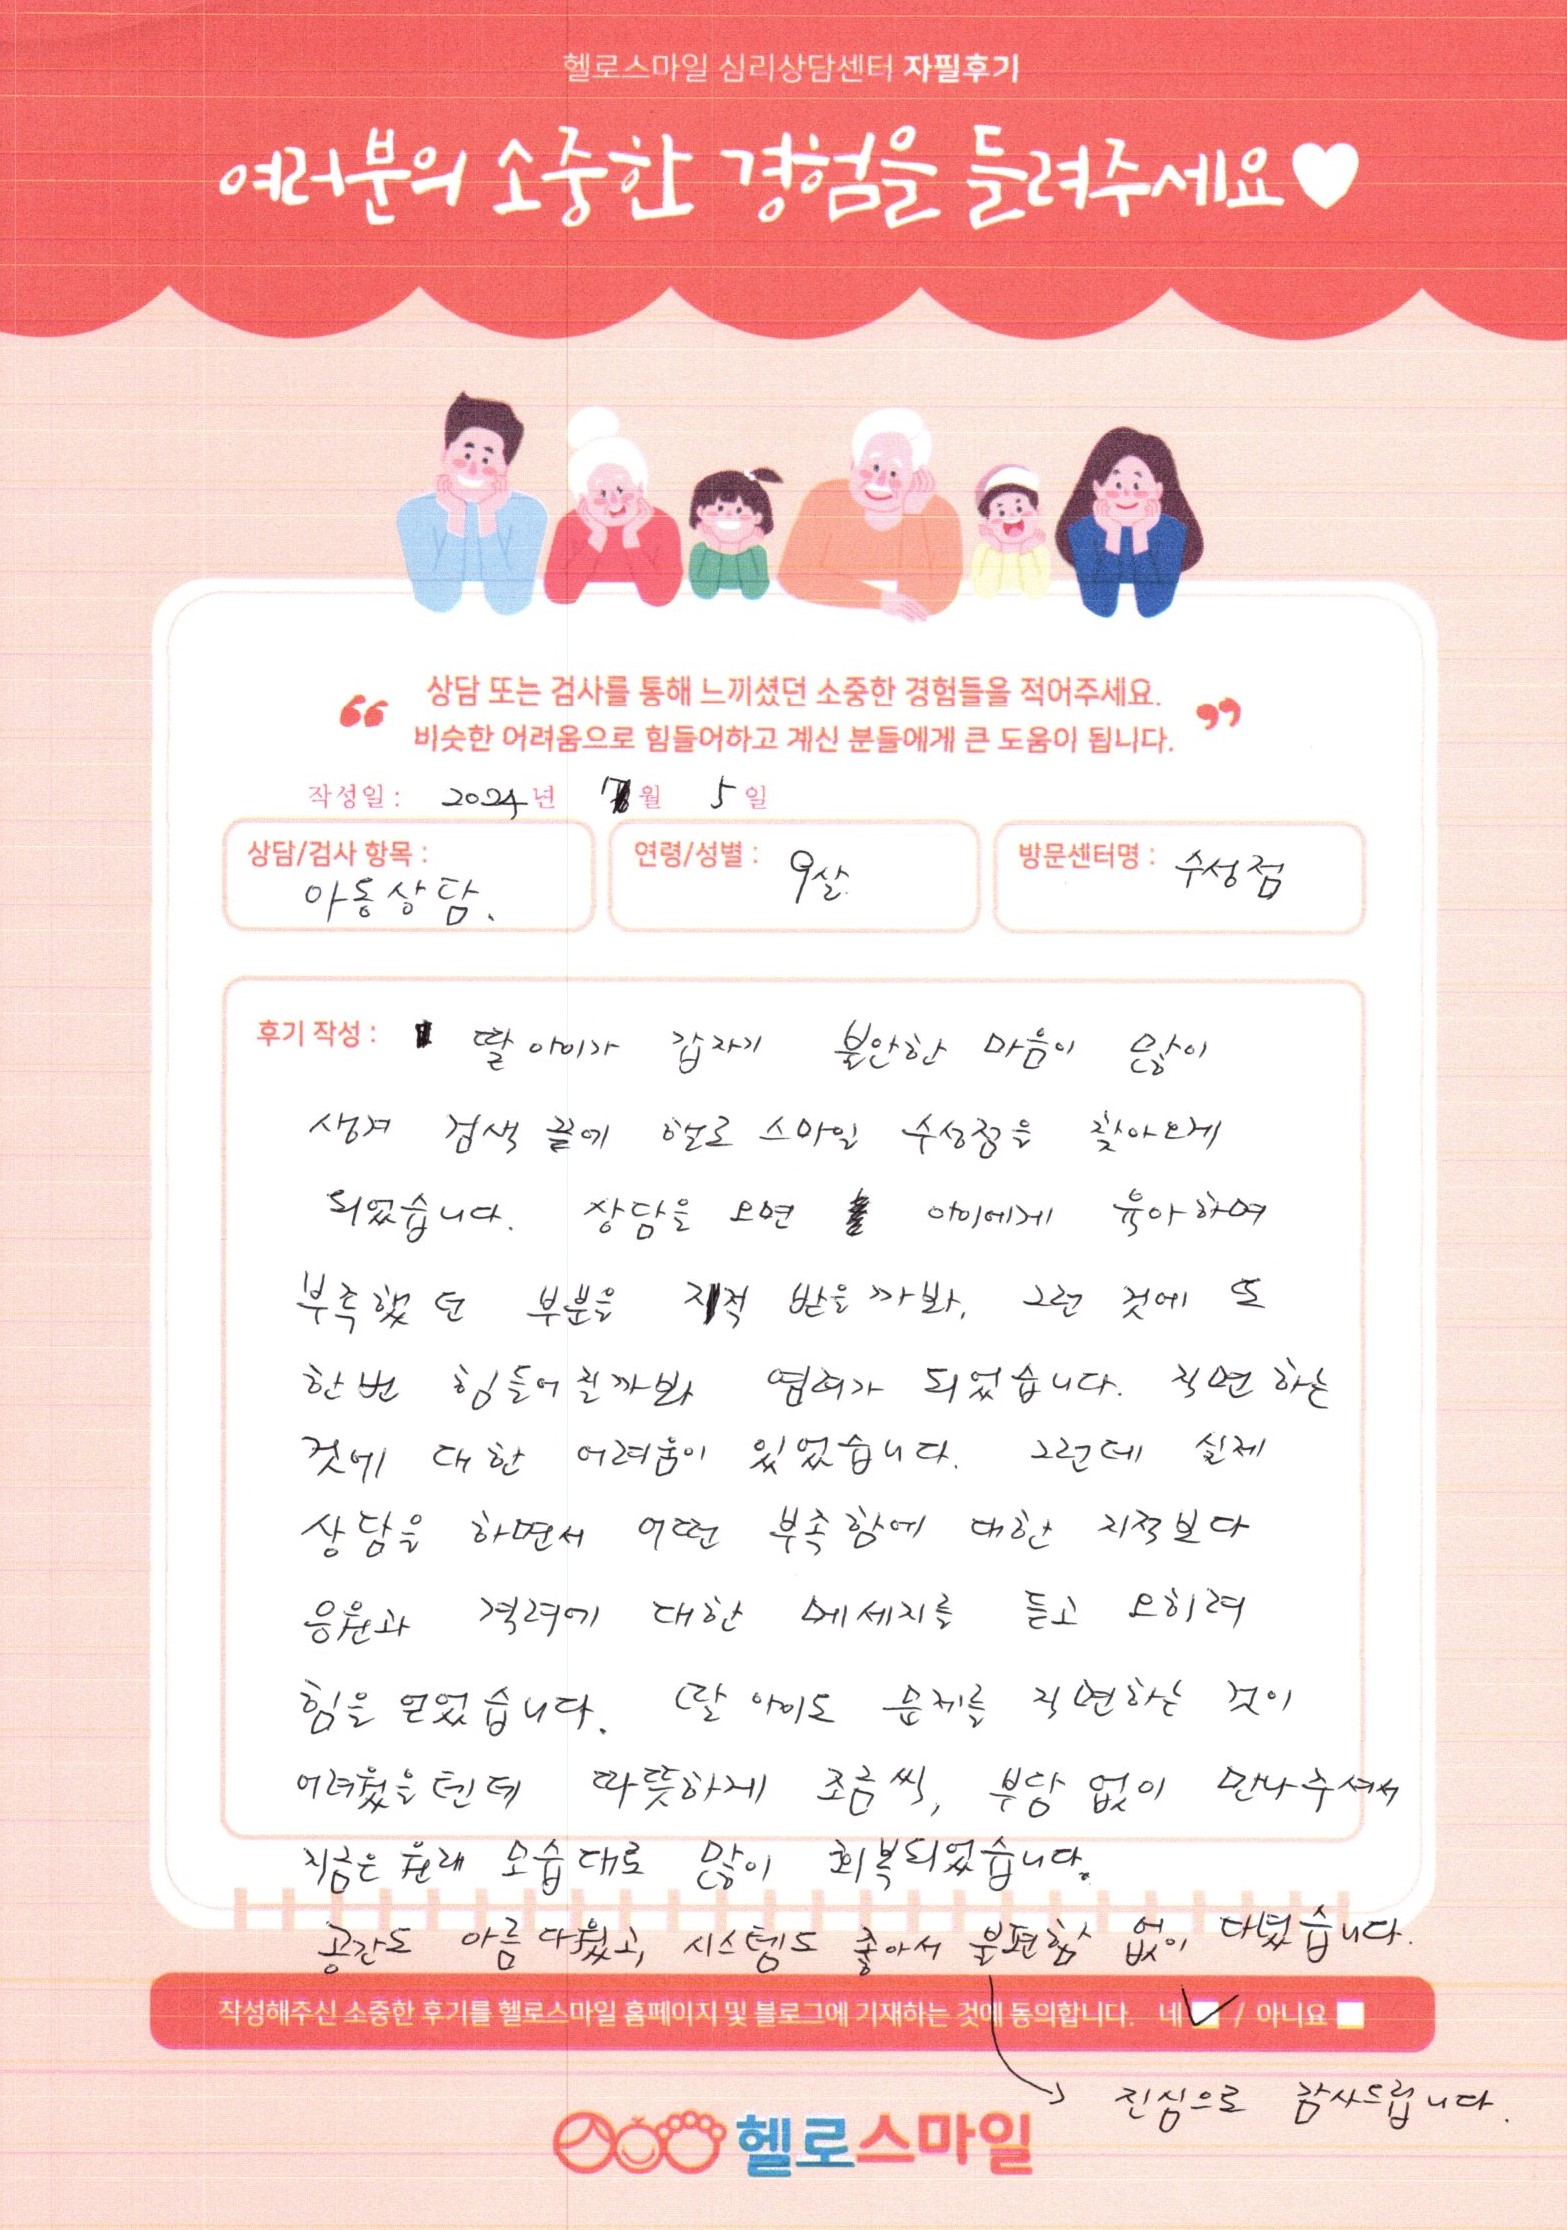 헬로스마일 심리상담센터 자필후기
여러분의 소중한 경험을 들려주세요♥
“ 상담 또는 검사를 통해 느끼셨던 소중한 경험들을 적어주세요. ”
비슷한 어려움으로 힘들어하고 계신 분들에게 큰 도움이 됩니다.
작성일 : 2024년 7월 5일
상담/검사 항목 : 아동상담.
연령/성별 : 9살
방문센터명 : 수성점
후기 작성 : 딸 아이가 갑자기 불안한 마음이 많이
생겨 검색 끝에 헬로 스마일 수성점을 찾아오게
되었습니다. 상담을 오면 아이에게 육아하며
부족했던 부분을 지적 받을까봐, 그런 것에 또
한번 힘들어질까봐 염려가 되었습니다. 직면하는
것에 대한 어려움이 있었습니다. 그런데 실제
상담을 하면서 어떤 부족함에 대한 지적보다
응원과 격려에 대한 메세지를 듣고 오히려
힘을 얻었습니다. 딸 아이도 문제를 직면하는 것이
어려웠을텐데 따뜻하게 조금씩, 부담 없이 만나주셔서
지금은 원래 모습대로 많이 회복되었습니다.
공간도 아름다웠고, 시스템도 좋아서 불편함 없이 다녔습니다.
작성해주신 소중한 후기를 헬로스마일 홈페이지 및 블로그에 기재하는 것에 동의합니다. 네 / 아니요
진심으로 감사드립니다.
헬로스마일